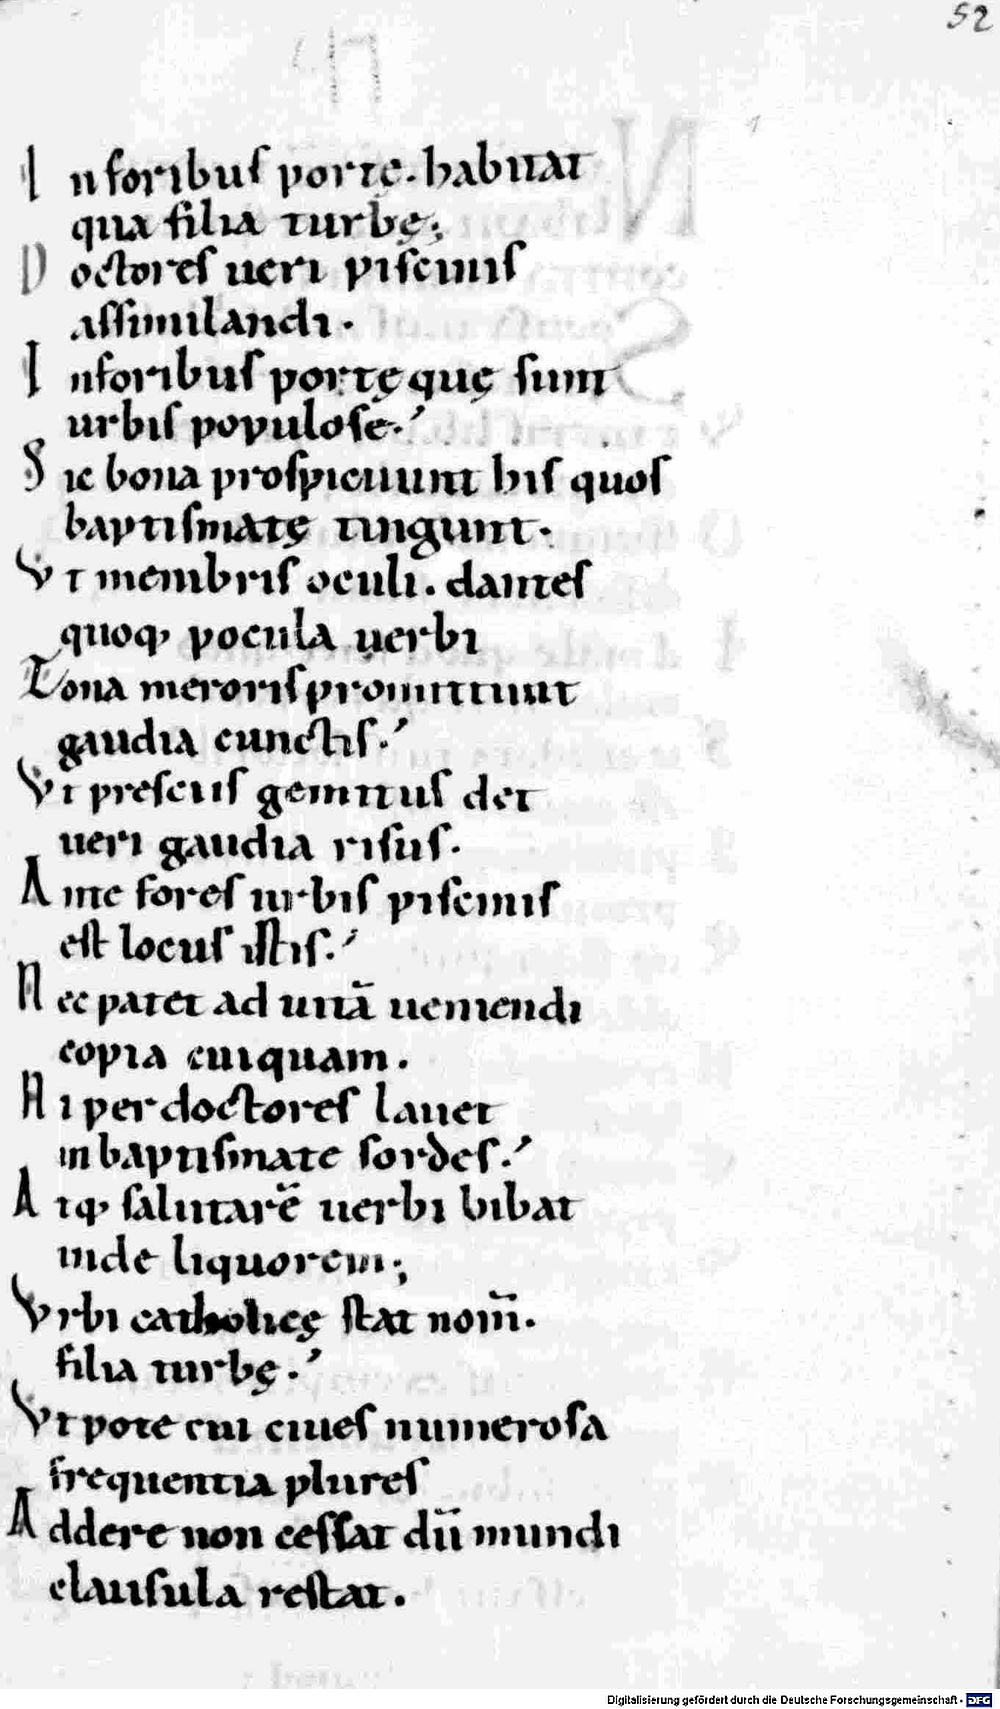 52
In foribus portę. habitat
qua filia turbę;
Doctores ueri piscinis
assimilandi.
In foribus portę quę sunt
urbis populose.
Sic bona prospiciunt his quos
baptismatę tingunt.
Vt membris oculi. dantes
quoq; pocula uerbi
Dona meroris promittunt
gaudia cunctis.
Vt prescius gemitus det
ueri gaudia risus.
Ante fores urbis piscinis
est locus istis.
Nec patet ad uitā ueniendi
copia cuiquam.
Ni per doctores lauet
in baptismate sordes.
Atq; salutarē uerbi bibat
inde liquorem;
Vrbi catholicę stat nom̄.
filia turbę.
Vt pote cui ciues numerosa
frequentia plures
Addere non cessat dū mundi
clausula restat.
Digitalisierung gefördert durch die Deutsche Forschungsgemeinschaft - DFG